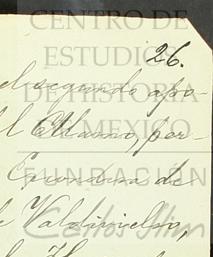 CENTRO DE
ESTUDIOS
DE HISTORIA
DE MÉXICO
FUNDACIÓN
Carlos Slim
26.
el segundo apo-
l Alamo, per-
de
Valdivielso,